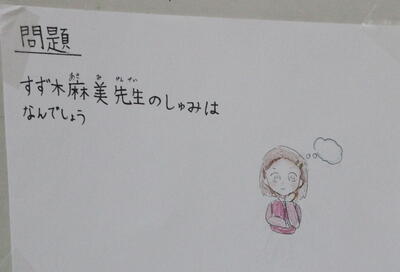 問題
すず木麻美先生のしゅみは
なんでしょう